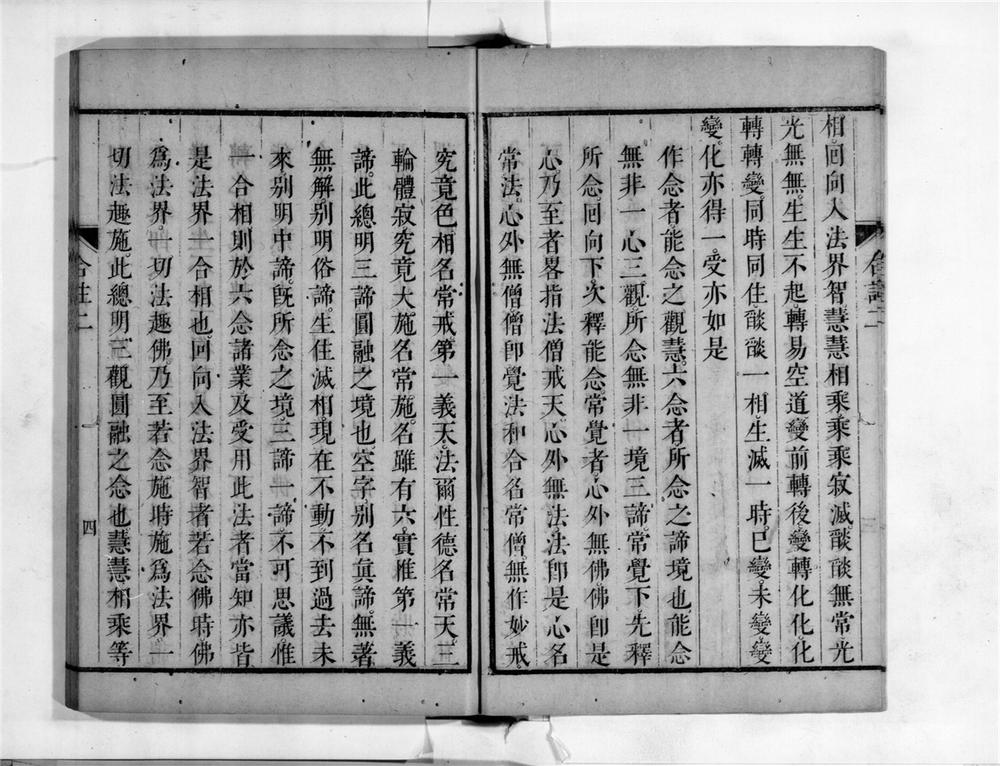 相。回向入法界智慧慧相乘乘乘寂滅燄燄無常光
光無無。生生不起。轉易空道。變前轉後。變轉化化化
轉轉變。同時同住。燄燄一相。生滅一時。已變。未變。變
變。化亦得一。受亦如是
作念者能念之觀慧六念者所念之諦境也能念
無非一心三觀。所念無非一境三諦。常覺下。先釋
所念。回向下。次釋能念。常覺者。心外無佛。佛即是
心。乃至者畧指法僧戒天。心外無法。法即是心。名
常法。心外無僧。僧即覺法和合名常僧。無作妙戒。
究竟色相。名常戒。第一義天。法爾性德名常天。三
輪體寂究竟大施名常施。名雖有六實惟第一義
諦。此總明三諦圓融之境也。空字。別名真諦。無著
無解。別明俗諦。生住滅相。現在不動。不到過去未
來。別明中諦。旣所念之境。三諦一諦。不可思議。惟
一合相則於六念諸業及受用此法者當知亦皆
是法界一合相也。回向入法界智者若念佛時。佛
爲法界。一切法趣佛。乃至若念施時施爲法界。一
切法趣施。此總明三觀圓融之念也。慧慧相乘等
合註二
四
合註二